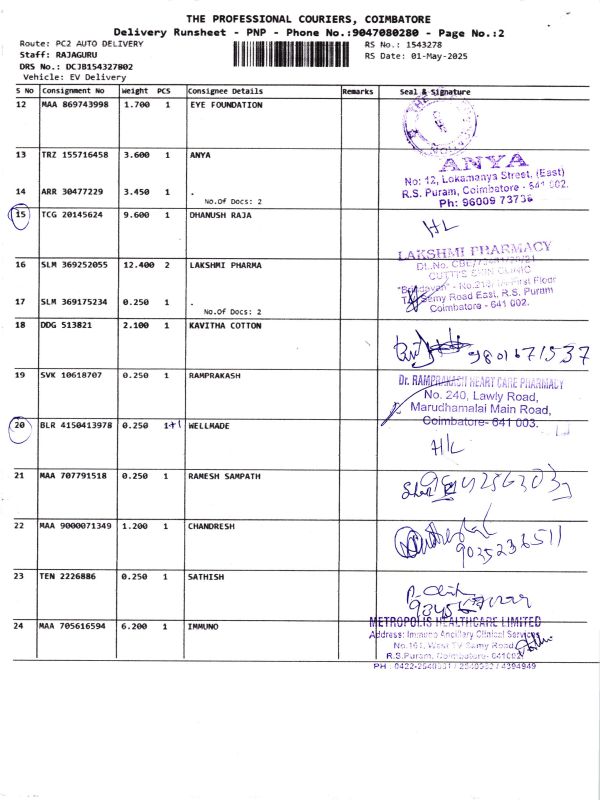 THE PROFESSIONAL COURIERS, COIMBATORE
Delivery Runsheet - PNP - Phone No.:9047080280 - Page No.:2
Route: PC2 AUTO DELIVERY
Staff: RAJAGURU
DRS No.: DCJB154327802
Vehicle: EV Delivery
RS No.: 1543278
RS Date: 01-May-2025
S No Consignment No Weight PCS Consignee Details Remarks Seal & Signature
12 MAA 869743998 1.700 1 EYE FOUNDATION
13 TRZ 155716458 3.600 1 ANYA
ANYA
No: 12, Lokamanya Street, (East)
R.S. Puram, Coimbatore - 641 002.
Ph: 96009 73736
14 ARR 30477229 3.450 1 .
No.Of Docs: 2
15 TCG 20145624 9.600 1 DHANUSH RAJA
HL
16 SLM 369252055 12.400 2 LAKSHMI PHARMA
LAKSHMI PHARMACY
CUTTS SKIN CLINIC
First Floor
Samy Road East, R.S. Puram
Coimbatore - 641 002.
17 SLM 369175234 0.250 1 .
No.Of Docs: 2
18 DDG 513821 2.100 1 KAVITHA COTTON
9801671537
19 SVK 10618707 0.250 1 RAMPRAKASH
Dr. RAMPRAKASH HEART CARE PHARMACY
No. 240, Lawly Road,
Marudhamalai Main Road,
Coimbatore- 641 003.
20 BLR 4150413978 0.250 1+1 WELLMADE
H/L
21 MAA 707791518 0.250 1 RAMESH SAMPATH
22 MAA 9000071349 1.200 1 CHANDRESH
9035236511
23 TEN 2226886 0.250 1 SATHISH
24 MAA 705616594 6.200 1 IMMUNO
METROPOLIS HEALTHCARE LIMITED
Address: Immuno Ancillary Clinical Services
No.161, West TV Samy Road,
R.S.Puram, Coimbatore- 641002